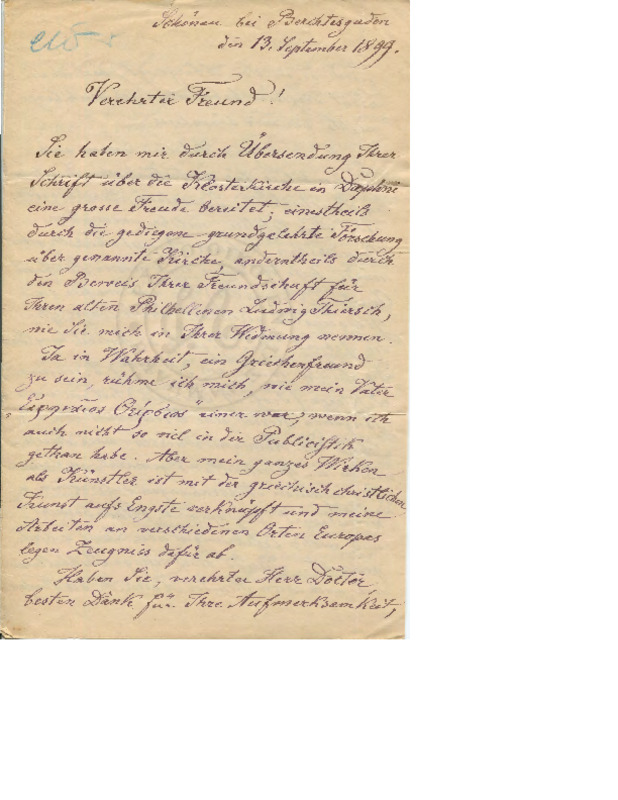 Schönau bei Berchtesgaden
den 13. September 1899.
Verehrter Freund!
Sie haben mir durch Übersendung Ihrer
Schrift über die Klosterkirche in Daphni
eine grosse Freude bereitet, einestheils
durch die gediegene grundgelehrte Forschung
über genannte Kirche, anderntheils durch
den Beweis Ihrer Freundschaft für
Ihren alten Philhellenen Ludwig Thiersch,
wie Sie mich in Ihrer Widmung nennen.
Ja in Wahrheit, ein Griechenfreund
zu sein, rühme ich mich, wie mein Vater
einer war, wenn ich
auch nicht so viel in der Publicistik
gethan habe. Aber mein ganzes Wirken
als Künstler ist mit der griechisch christlichen
Kunst aufs Engste verknüpft und meine
Arbeiten an verschiedenen Orten Europas
legen Zeugniss dafür ab.
Haben Sie, verehrter Herr Doctor
besten Dank für Ihre Aufmerksamkeit,